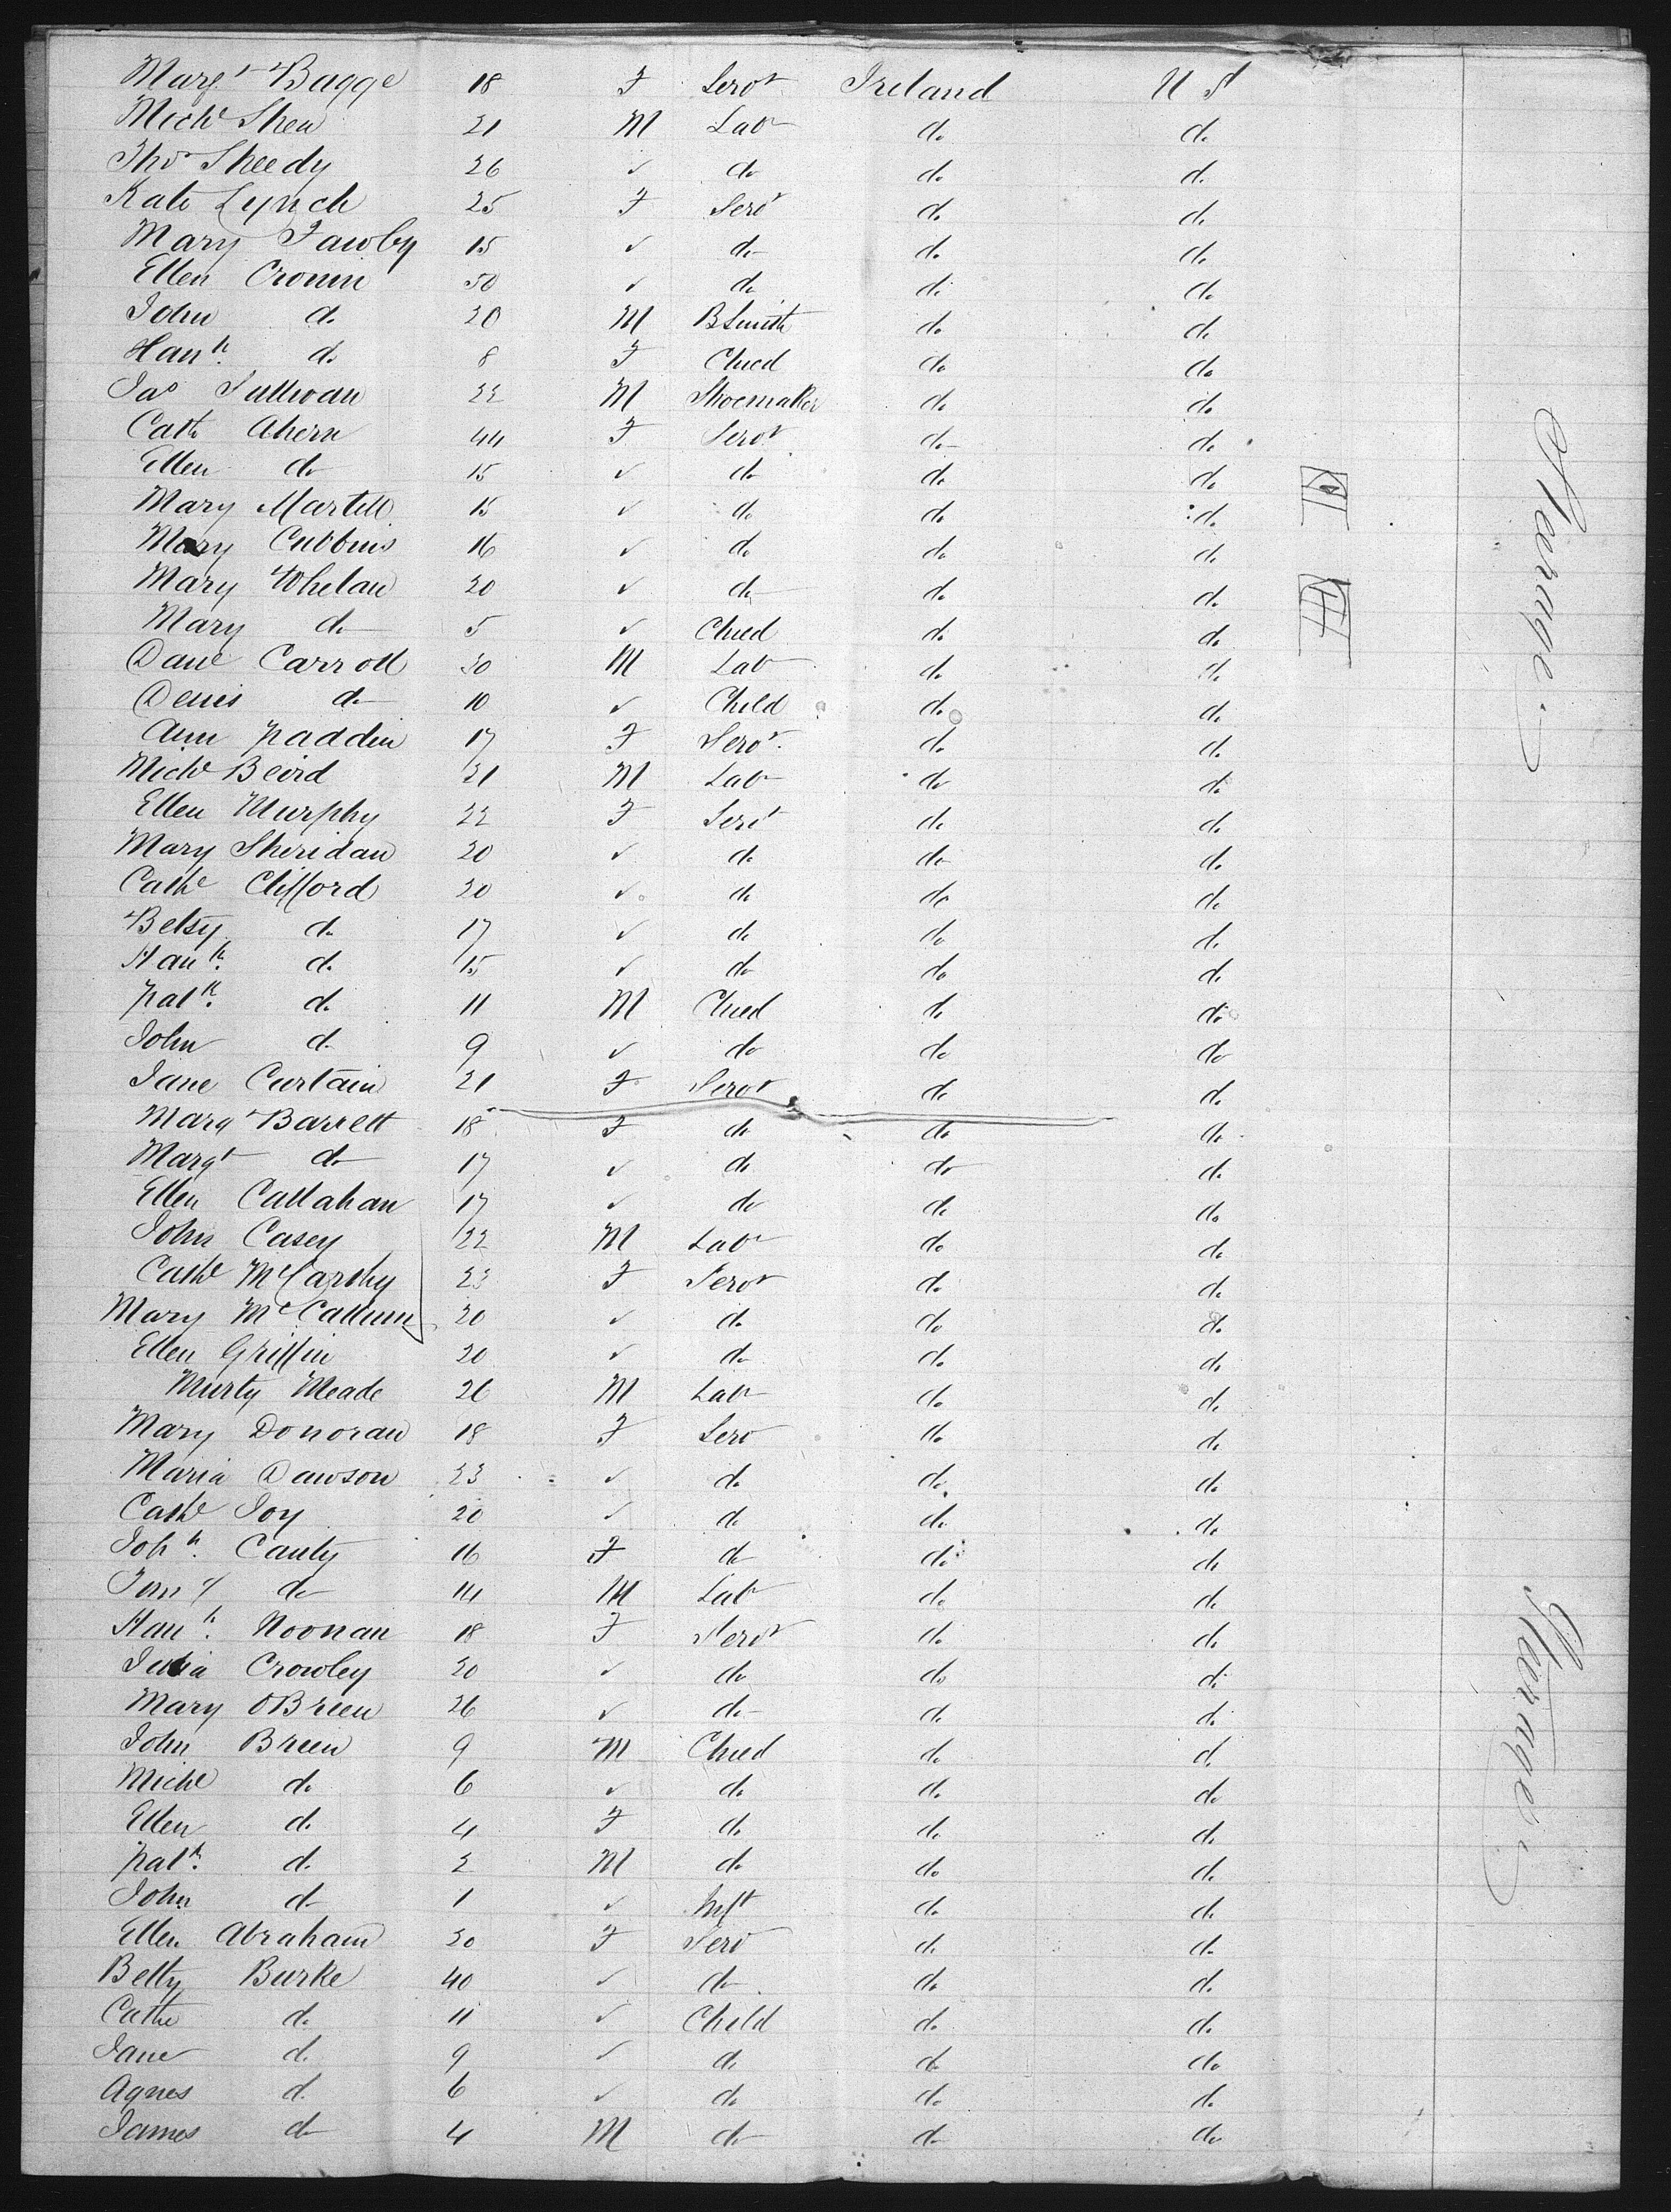 Margt Bugge 18 F Servt Ireland U S
Michl Shea 21 M Labr do do
Thos Sheedy 26 ✓ do do do
Kate Lynch 25 F Servt do do
Mary 15 ✓ do do do
Ellen Cronin 50 ✓ do do do
John do 20 M BSmith do do
Hanh. do 8 F Child do do
Jas Sullivan 22 M Shoemaker do do
Cath Ahern 44 F Servt do do
Ellen do 15 ✓ do do do
Mary Martell 15 ✓ do do do
Mary Cubbins 16 ✓ do do do
Mary Whelan 20 ✓ do do do
Mary do 5 ✓ Child do do
Danl Carroll 30 M Labr do do
Denis do 10 ✓ Child do do
Ann Paddin 17 F Servt. do do
Michl 21 M Labr do do
Ellen Murphy 22 F Servt do do
Mary Sheridan 20 ✓ do do do
Cathe Clifford 20 ✓ do do do
Betsy do 17 ✓ do do do
Hanh. do 15 ✓ do do do
Patk. do 11 M Child do do
John do 9 ✓ do do do
Jane Curtain 21 F Servt do do
Marg Barrett 18 F do do do
Margt do 17 ✓ do do do
Ellen Callahan 17 ✓ do do do
John Casey 22 M Labr do do
Cathe McCarthy 23 F Servt do do
Mary McCallum 20 ✓ do do do
Ellen Griffin 20 ✓ do do do
Murty Meade 26 M Labr do do
Mary Donovan 18 F Serv do do
Maria Dawson 23 ✓ do do do
Cathe Joy 20 ✓ do do do
Johh. Canty 16 F do do do
do 14 M Labr do do
Hanh. Noonan 18 F Servt do do
Julia Crowley 20 ✓ do do do
Mary OBrien 26 ✓ do do do
John Breen 9 M Child do do
Michl do 6 ✓ do do do
Ellen do 4 F do do do
Patk. do 2 M do do do
John do 1 ✓ Inft do do
Ellen Abraham 20 F Serv do do
Betty Burke 40 ✓ do do do
Cathe do 11 ✓ Child do do
Jane do 9 ✓ do do do
Agnes do 6 ✓ do do do
James do 4 M do do do
Steerage
Steerage